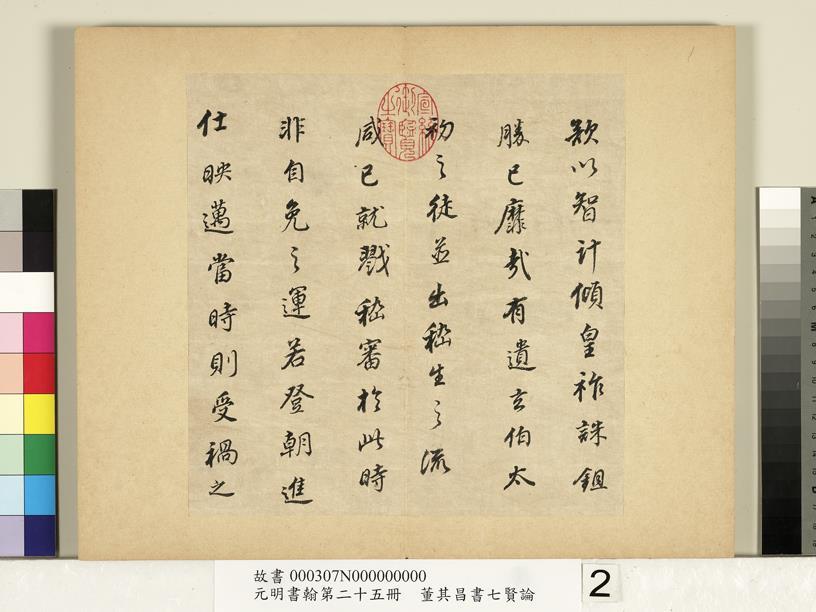 欵以智計傾皇祚誅鉏
勝己靡或有遺玄伯太
初之徒並出嵇生之流
咸已就戮嵇審於此時
非自免之運若登朝進
仕映邁當時則受禍之
宣統御覽之寶
故書 000307N000000000
元明書翰第二十五冊 董其昌書七賢論
2